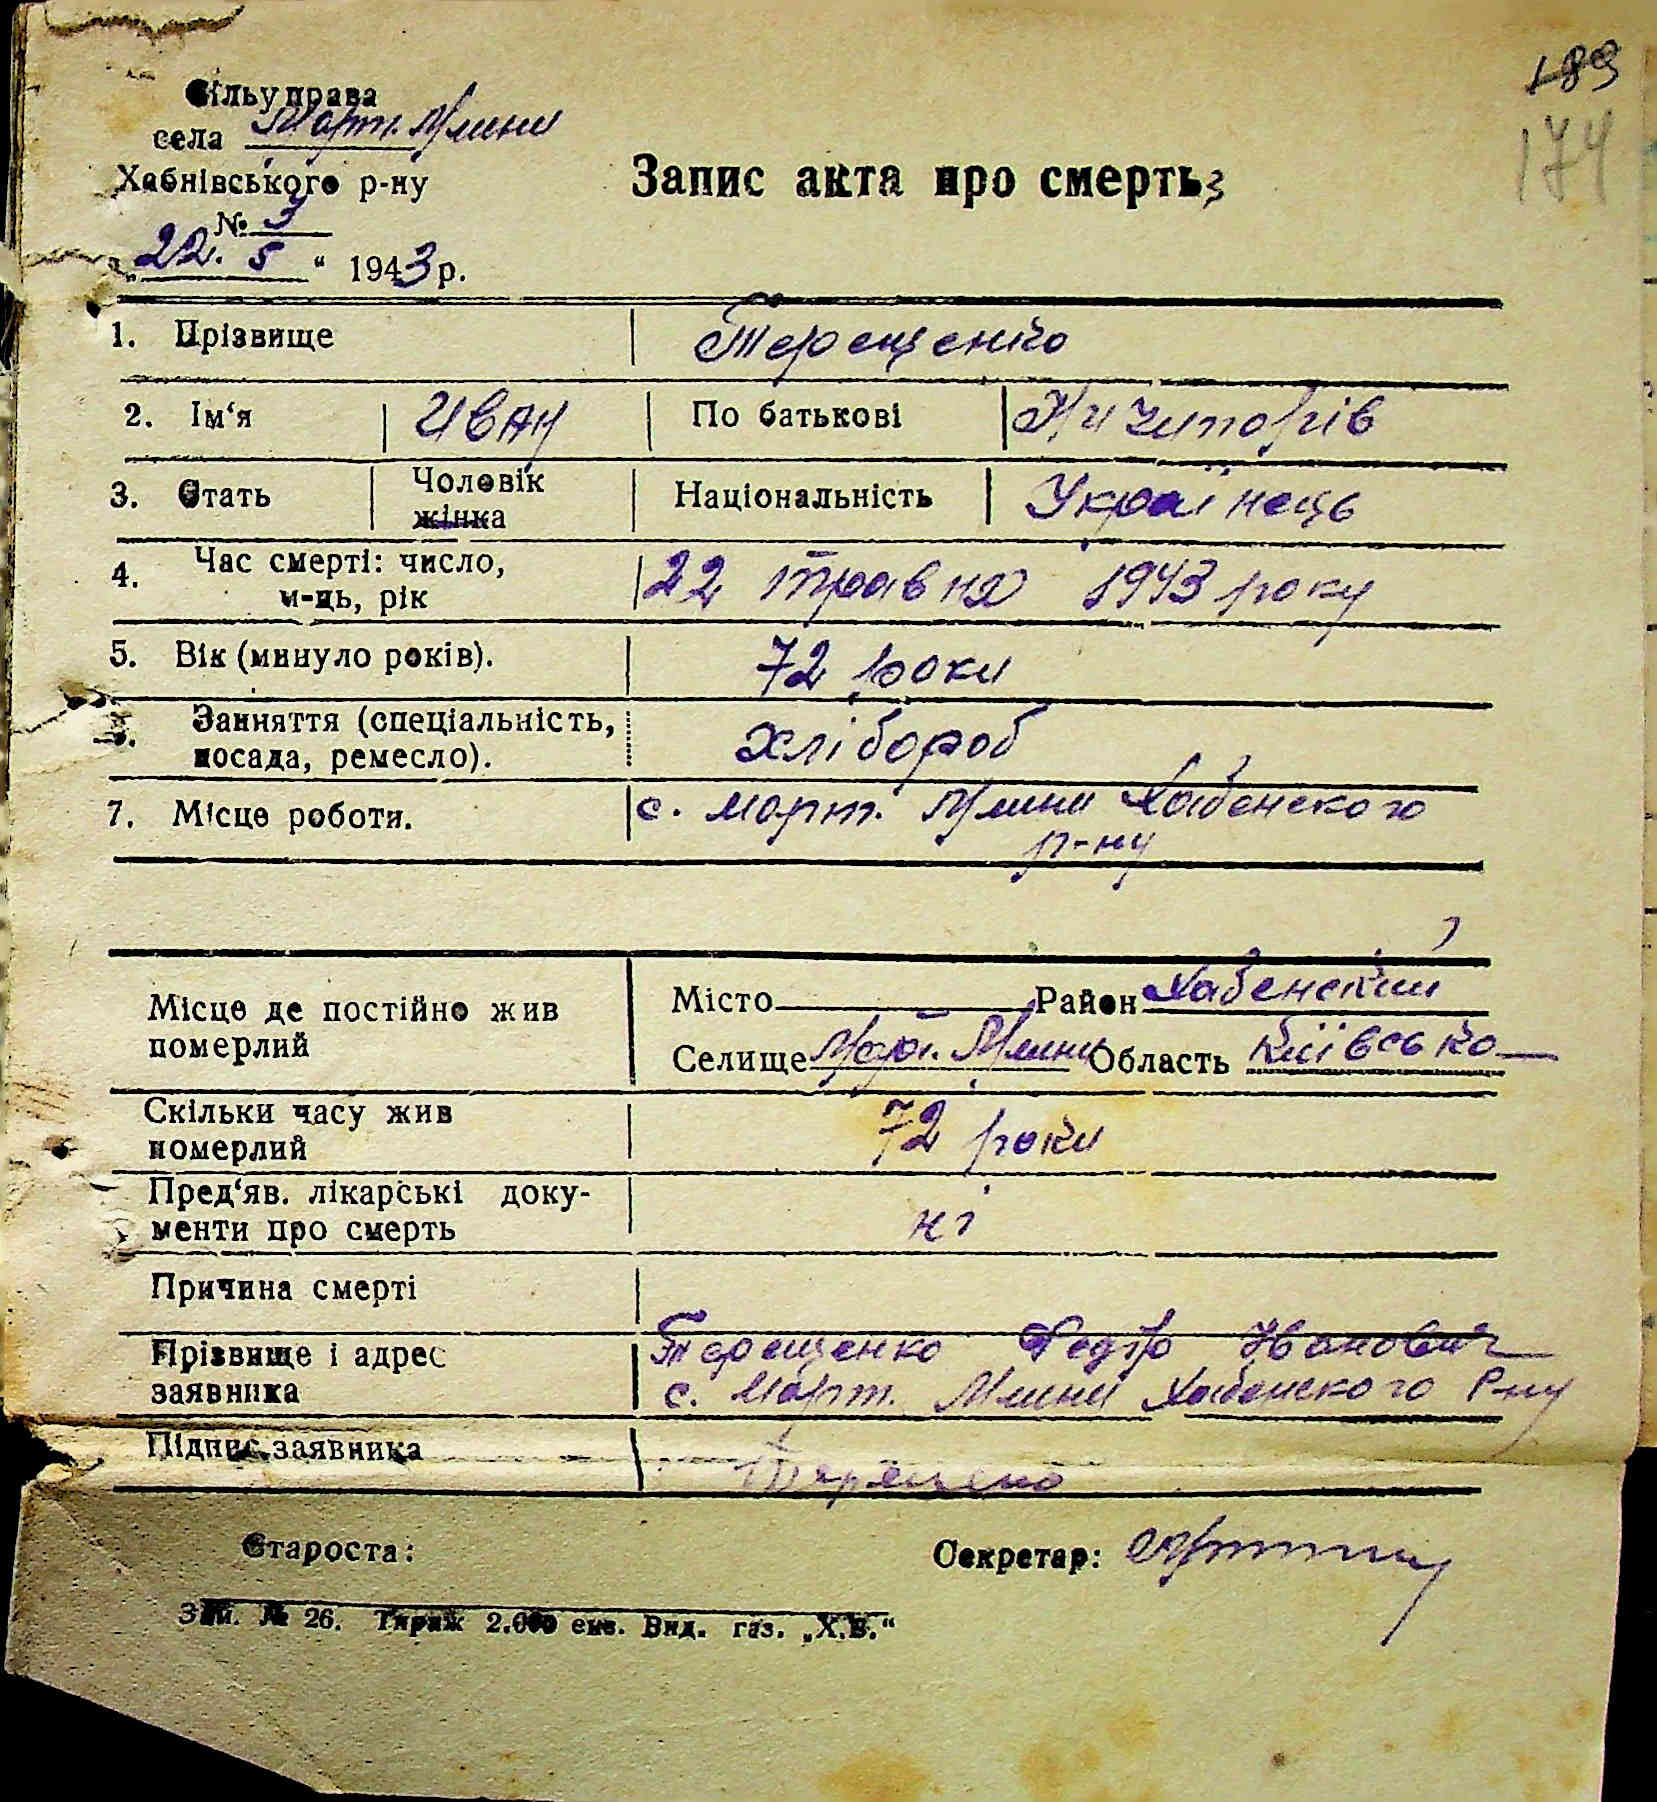 183
174
Сільуправа
села Март. Млини
Хабнівського р-ну
№ 3
„22. 5“ 1943 р.
Запис акта про смерть 3
1. Прізвище Терещенко
2. Ім‘я Иван По батькові Ничипорів
3. Стать Чоловік жінка Національність Українець
4. Час смерті: число, м-ць, рік 22 травня 1943 року
5. Вік (минуло років). 72 роки
Заняття (спеціальність, посада, ремесло). хлібороб
7. Місце роботи. с. Март. Млини Хабенского
р-ну
Місце де постійно жив померлий
Місто Район Хабенский
Селище Март. Млини Область Київсько
Скільки часу жив померлий 72 роки
Пред‘яв. лікарські документи про смерть ні
Причина смерті
Прізвище і адрес заявника Терещенко Федір Іванович
с. Март. Млини Хабенского Р-ну
Підпис заявника Терещено
Староста: Секретар:
Зам. № 26. Тираж 2.000 екз. Вид. газ. „Х.В.“